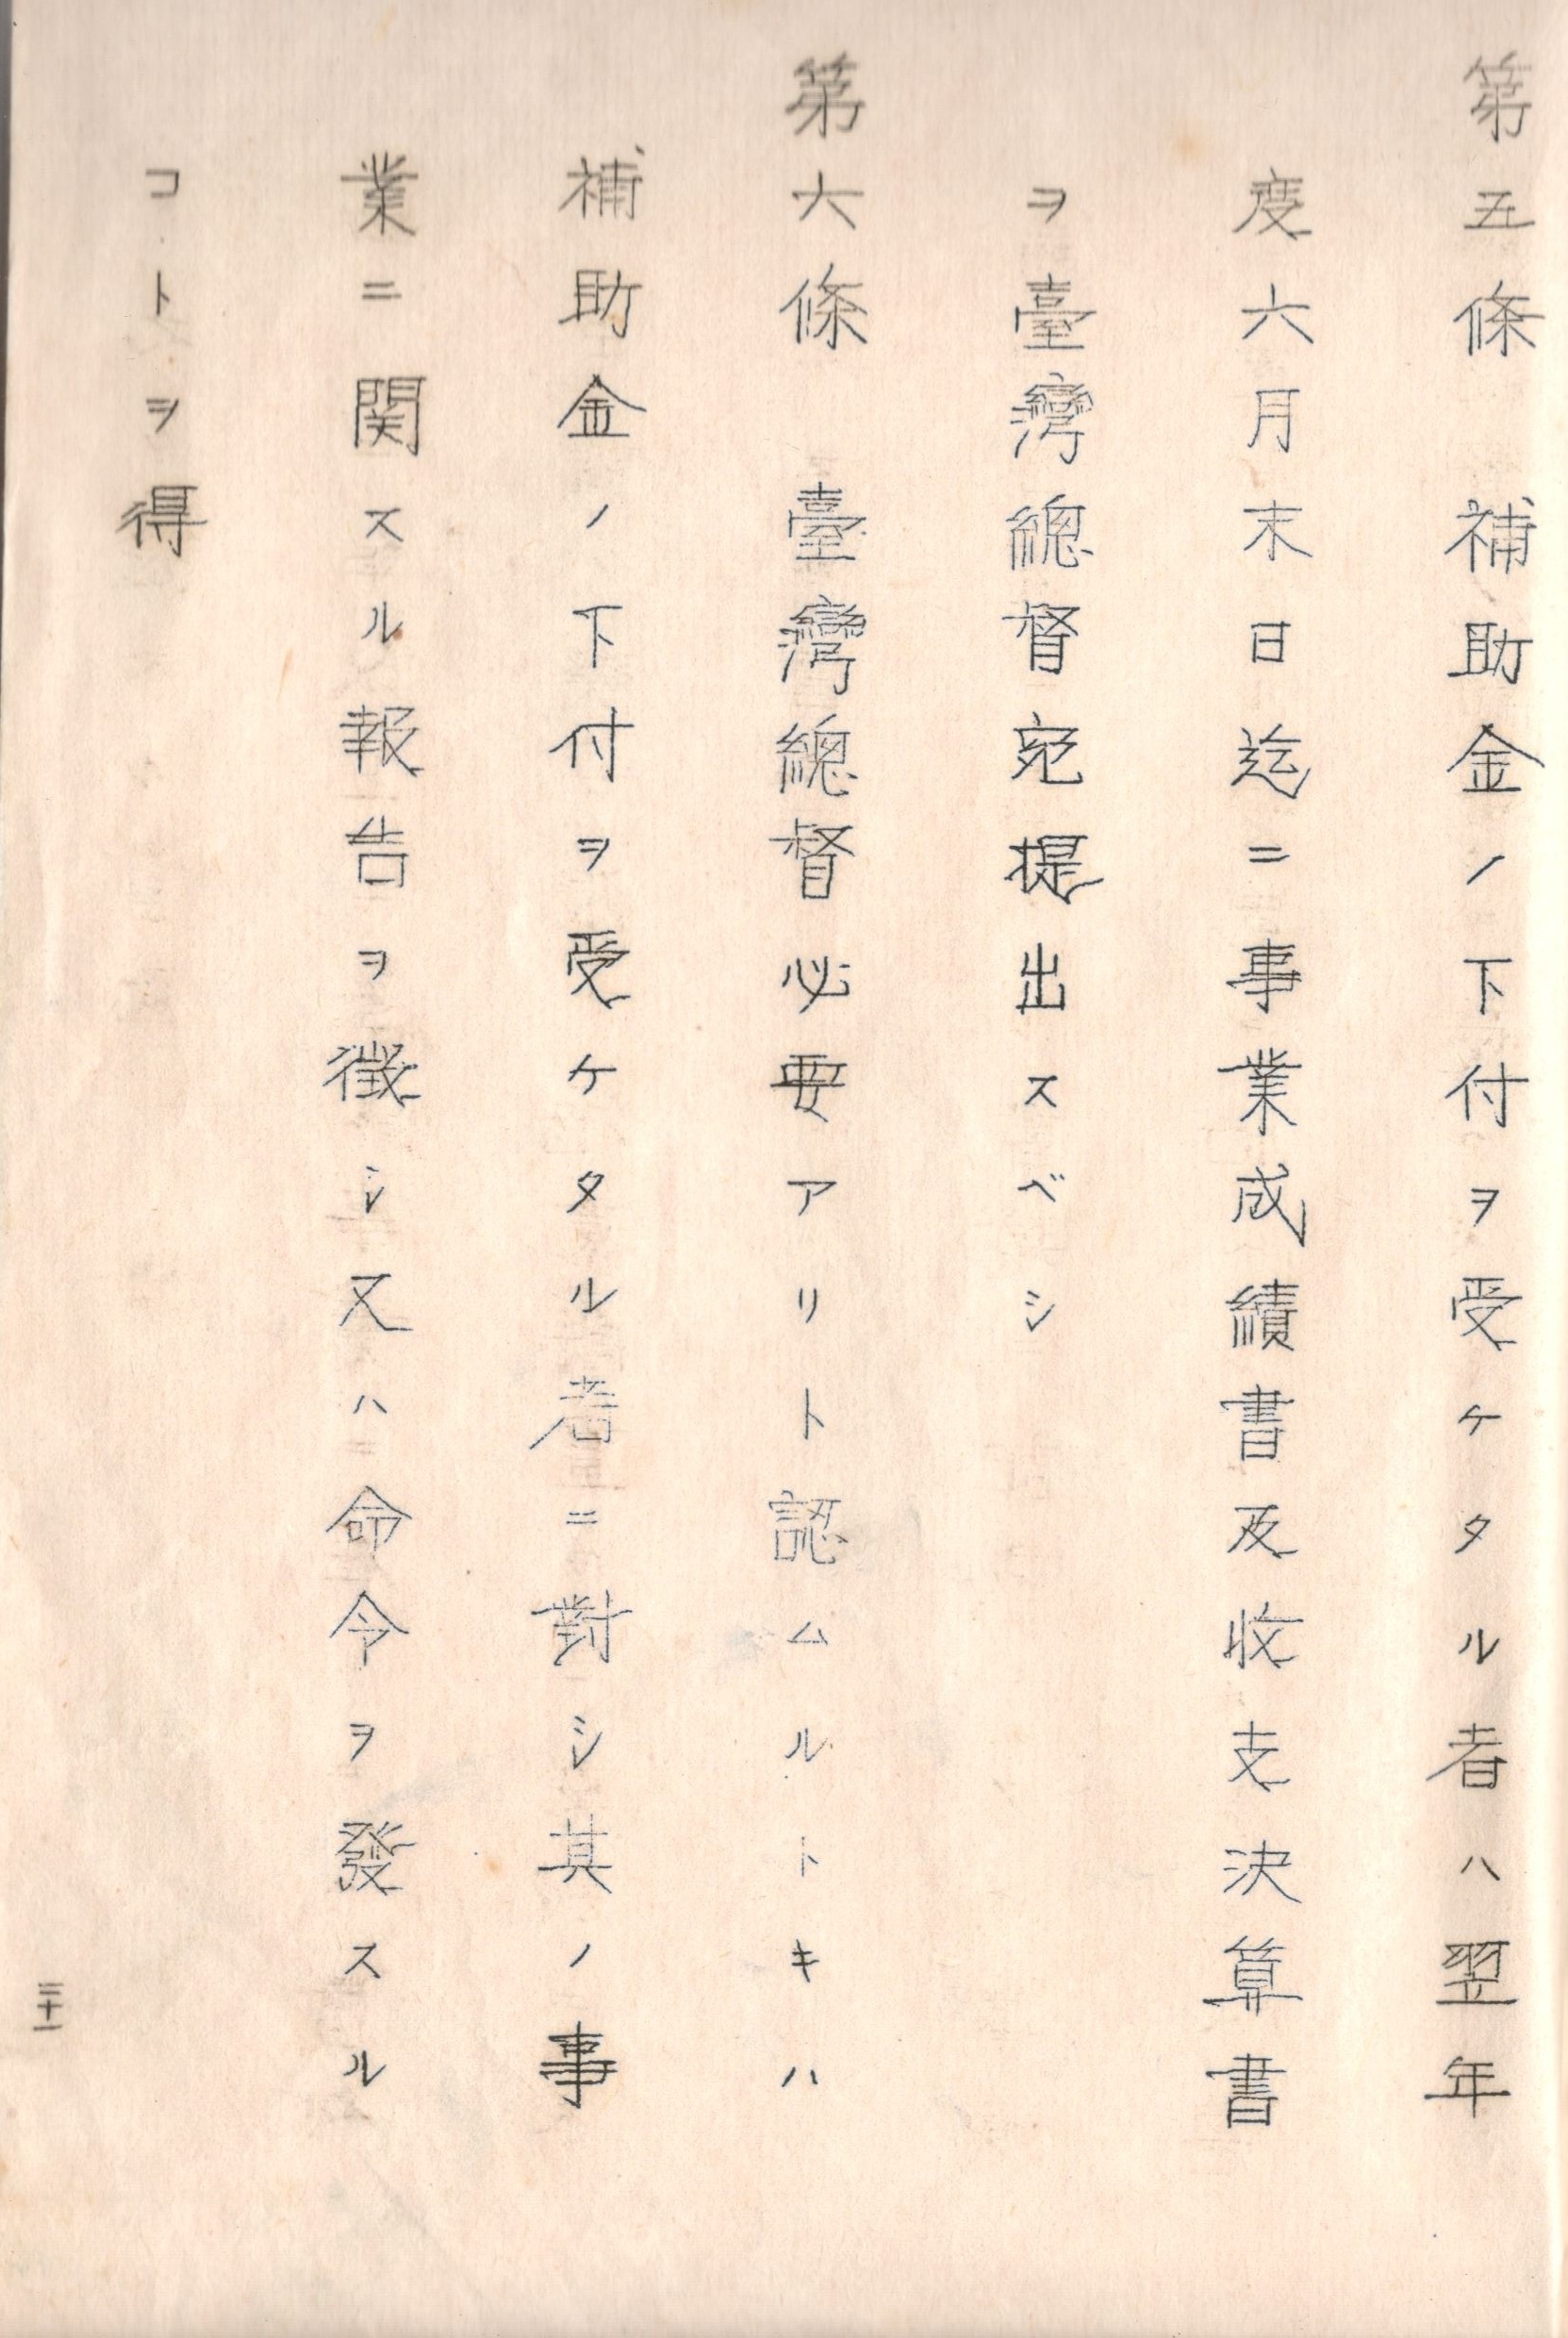 第五條　補助金ノ下付ヲ受ケタル者ハ翌年
度六月末日迄ニ事業成績書及收支決算書
ヲ臺灣總督宛提出スベシ
第六條　臺灣總督必要アリト認ムルトキハ
補助金ノ下付ヲ受ケタル者ニ對シ其ノ事
業ニ関スル報告ヲ徴シ又ハ命令ヲ發スル
コトヲ得
三十一